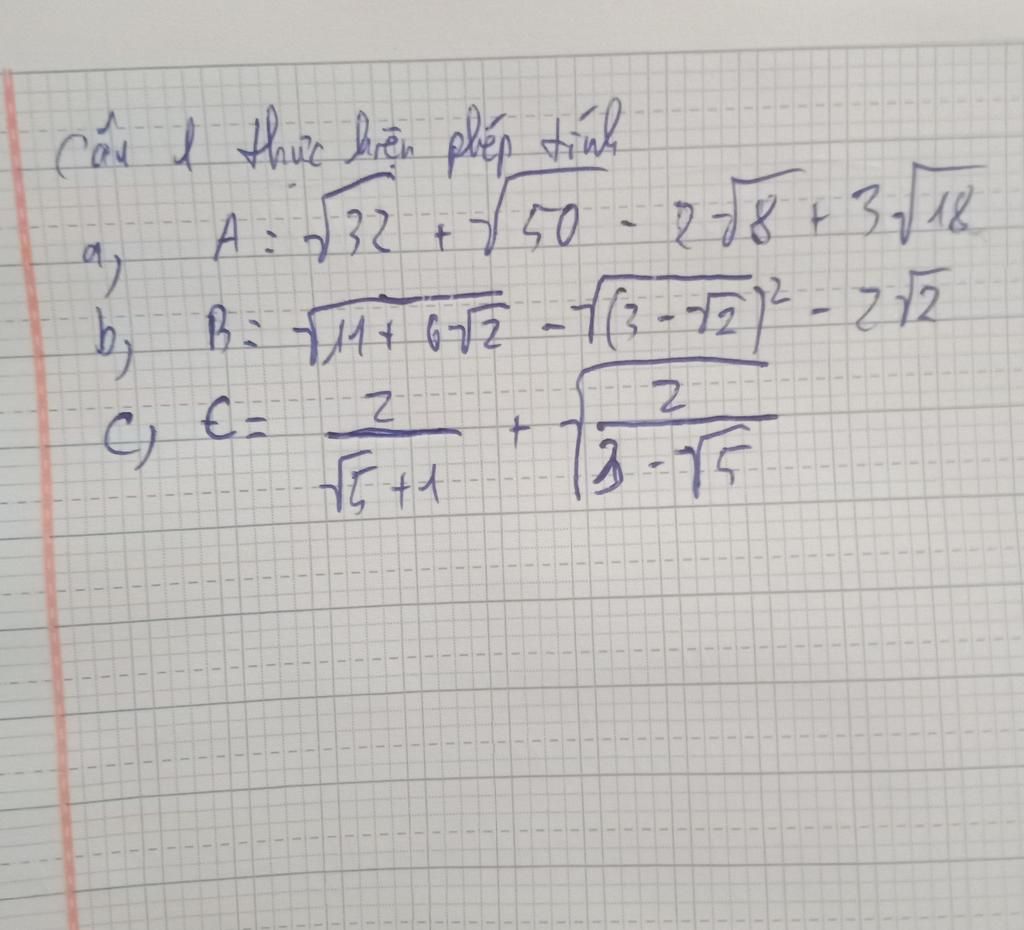 Câu 1 thực hiện phép tính
a, A = √32 + √50 - 2√8 + 3√18
b, B = √(11 + 6√2) - √((3 - √2)²) - 2√2
c, C = 2/(√5 + 1) + √(2/(3 - √5))